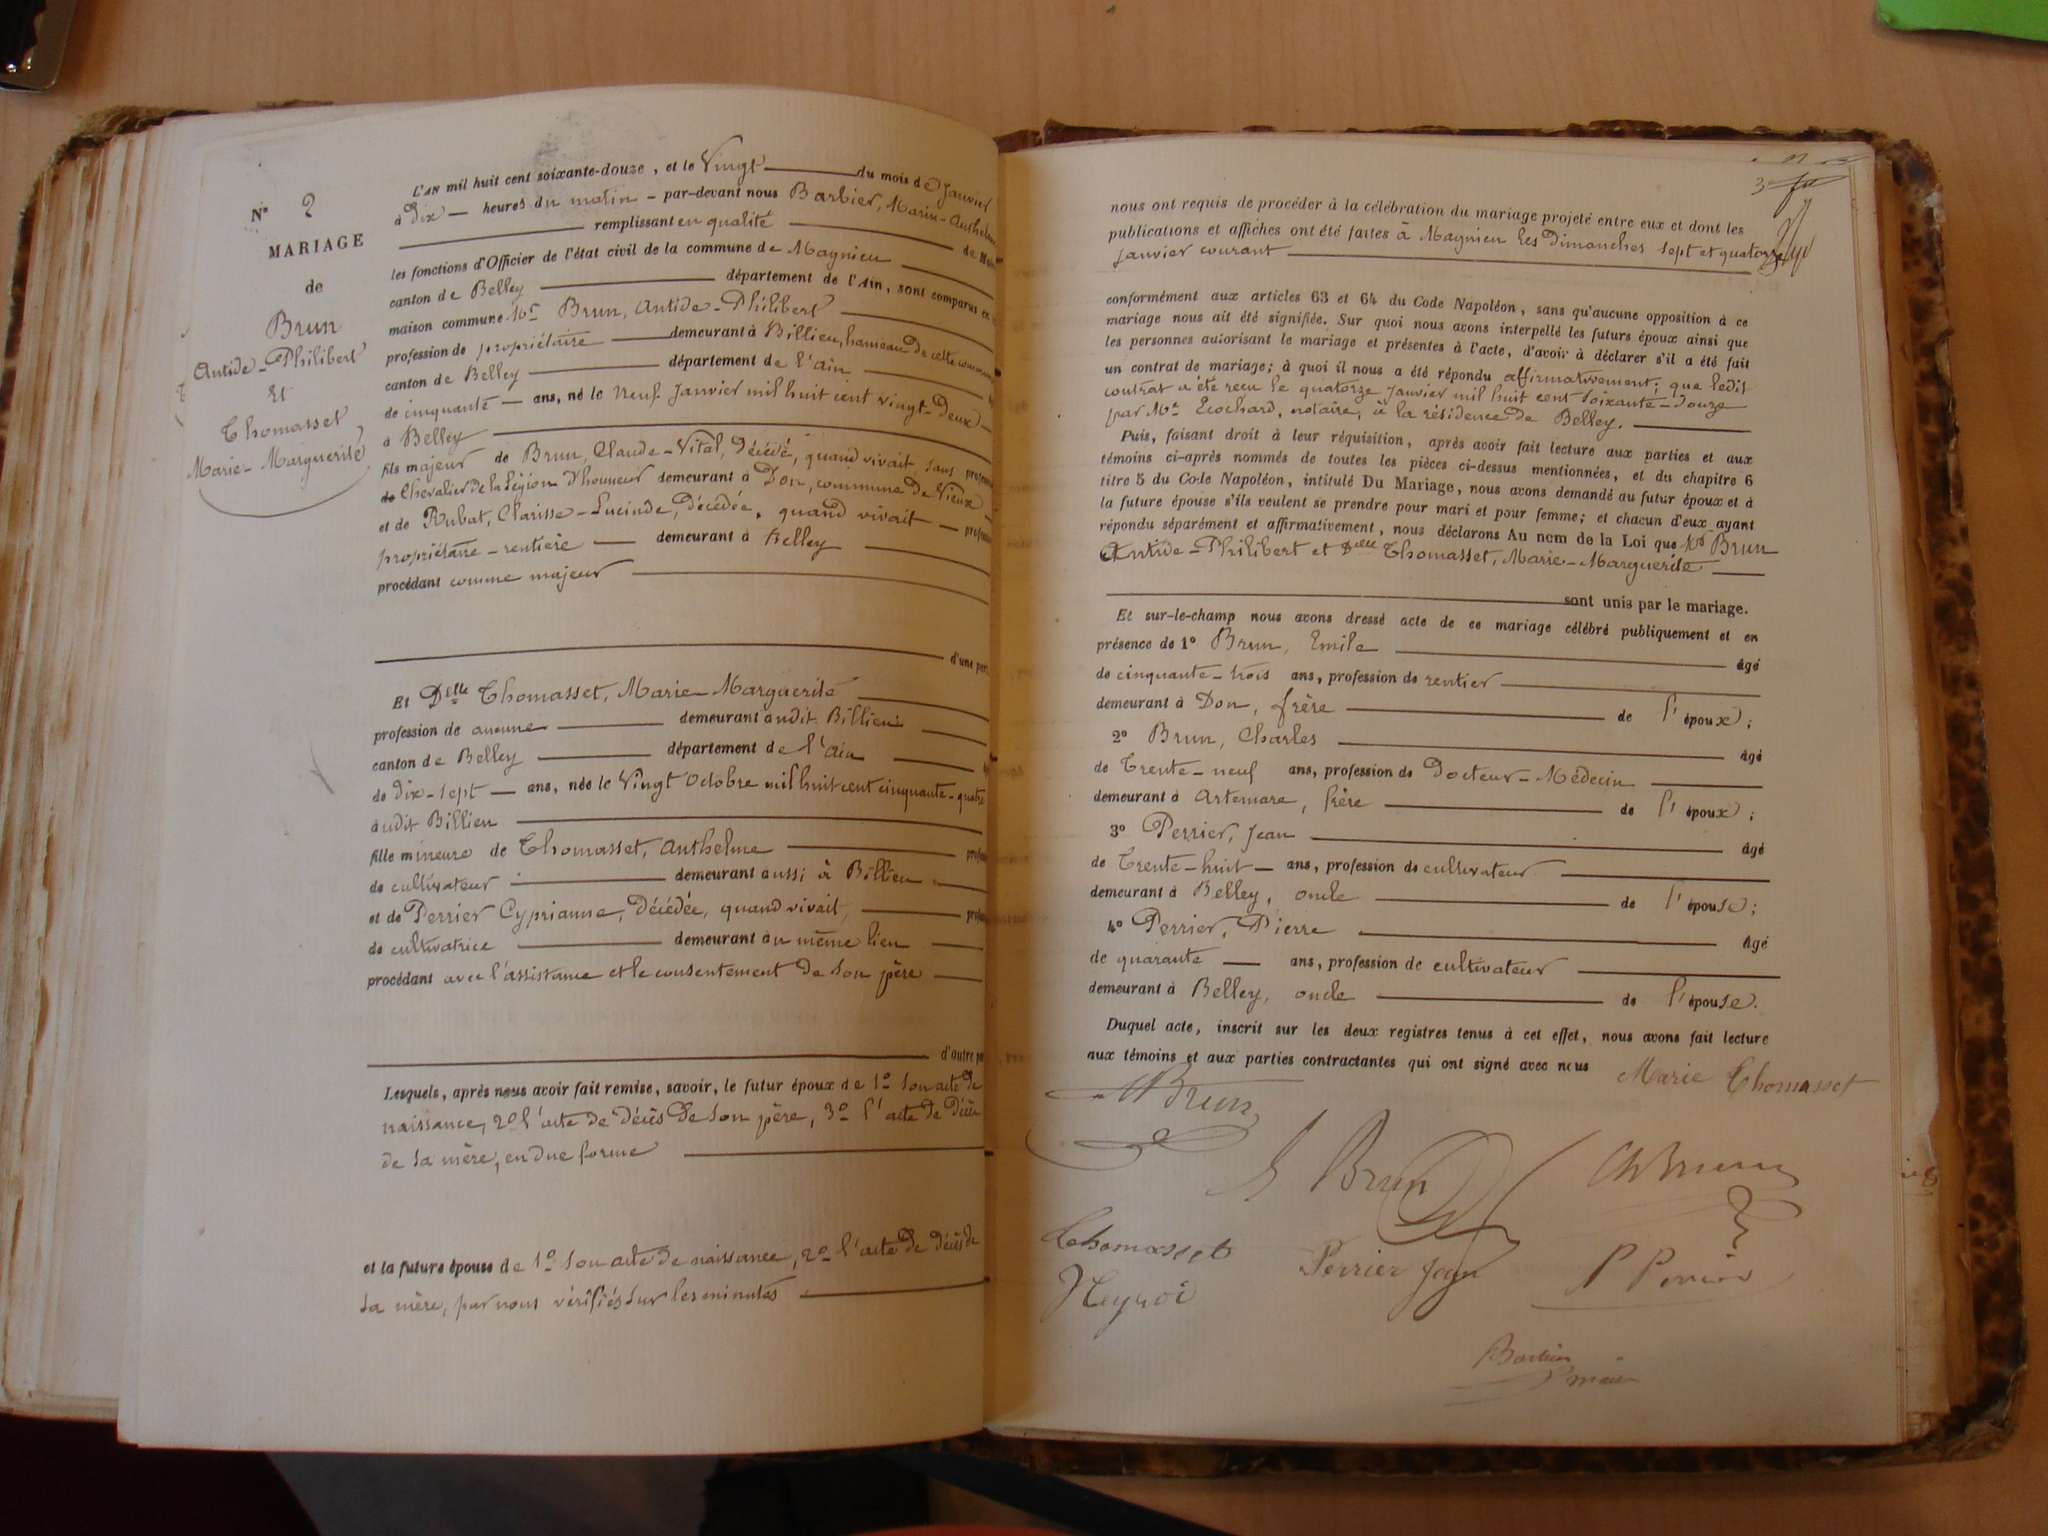 N° 2
MARIAGE
de
Brun
Antide-Philibert
Et
Thomasset
Marie-Marguerite
L'AN mil huit cent soixante-douze, et le Vingt du mois de Janvier
à Dix heures du matin par-devant nous Barbier, Marin-Anthelme
remplissant en qualité de
les fonctions d'Officier de l'état civil de la commune de Magnieu
canton de Belley département de l'Ain, sont comparus en
maison commune Mr Brun, Antide-Philibert
profession de propriétaire demeurant à Billieu, hameau de cette commune
canton de Belley département de l'ain
de cinquante ans, né le neuf Janvier mil huit cent vingt-Deux
à Belley
fils majeur de Brun, Claude-Vital, Décédé, quand vivait sans
de Chevalier de la Légion D'honneur demeurant à Don, commune De Vieux
et de Rubat, Clarisse-Lucinde, décédée, quand vivait
propriétaire-rentière demeurant à Belley
procédant comme majeur
d'une part
Et Delle Thomasset, Marie-Marguerite
profession de aucune demeurant audit Billieu
canton de Belley département de l'ain
de Dix-sept ans, née le Vingt Octobre mil huit cent cinquante-quatre
audit Billieu
fille mineure de Thomasset, Anthelme
de cultivateur demeurant aussi à Billieu
et de Perrier Cyprianne, Décédée, quand vivait,
de cultivatrice demeurant au même lieu
procédant avec l'assistance et le consentement de son père
d'autre
Lesquels, après nous avoir fait remise, savoir, le futur époux de 1° son acte de
naissance, 2° l'acte de décès De son père, 3° l'acte de Décès
de sa mère, en due forme
et la future épouse de 1° son acte de naissance, 2° l'acte de décès de
sa mère, par nous vérifiés sur les minutes
nous ont requis de procéder à la célébration du mariage projeté entre eux et dont les
publications et affiches ont été faites à Magnieu les Dimanches sept et quatorze
Janvier courant
conformément aux articles 63 et 64 du Code Napoléon, sans qu'aucune opposition à ce
mariage nous ait été signifiée. Sur quoi nous avons interpellé les futurs époux ainsi que
les personnes autorisant le mariage et présentes à l'acte, d'avoir à déclarer s'il a été fait
un contrat de mariage; à quoi il nous a été répondu affirmativement; que ledit
contrat a été reçu le quatorze Janvier mil huit cent soixante-Douze
par Me Ecochard, notaire, à la résidence de Belley.
Puis, faisant droit à leur réquisition, après avoir fait lecture aux parties et aux
témoins ci-après nommés de toutes les pièces ci-dessus mentionnées, et du chapitre 6
titre 5 du Code Napoléon, intitulé Du Mariage, nous avons demandé au futur époux et à
la future épouse s'ils veulent se prendre pour mari et pour femme; et chacun d'eux ayant
répondu séparément et affirmativement, nous déclarons Au nom de la Loi que Mr Brun
Antide-Philibert et Delle Thomasset, Marie-Marguerite
sont unis par le mariage.
Et sur-le-champ nous avons dressé acte de ce mariage célébré publiquement et en
présence de 1° Brun, Emile âgé
de cinquante-trois ans, profession de rentier
demeurant à Don, frère de l'époux;
2° Brun, Charles âgé
de Trente-neuf ans, profession de Docteur-Médecin
demeurant à Artemare, frère de l'époux;
3° Perrier, Jean âgé
de Trente-huit ans, profession de cultivateur
demeurant à Belley, oncle de l'épouse;
4° Perrier, Pierre âgé
de quarante ans, profession de cultivateur
demeurant à Belley, oncle de l'épouse.
Duquel acte, inscrit sur les deux registres tenus à cet effet, nous avons fait lecture
aux témoins et aux parties contractantes qui ont signé avec nous Marie Thomasset
Brun
E Brun Ch Brun
Thomasset Perrier Jean P Perrier
Barbier
maire